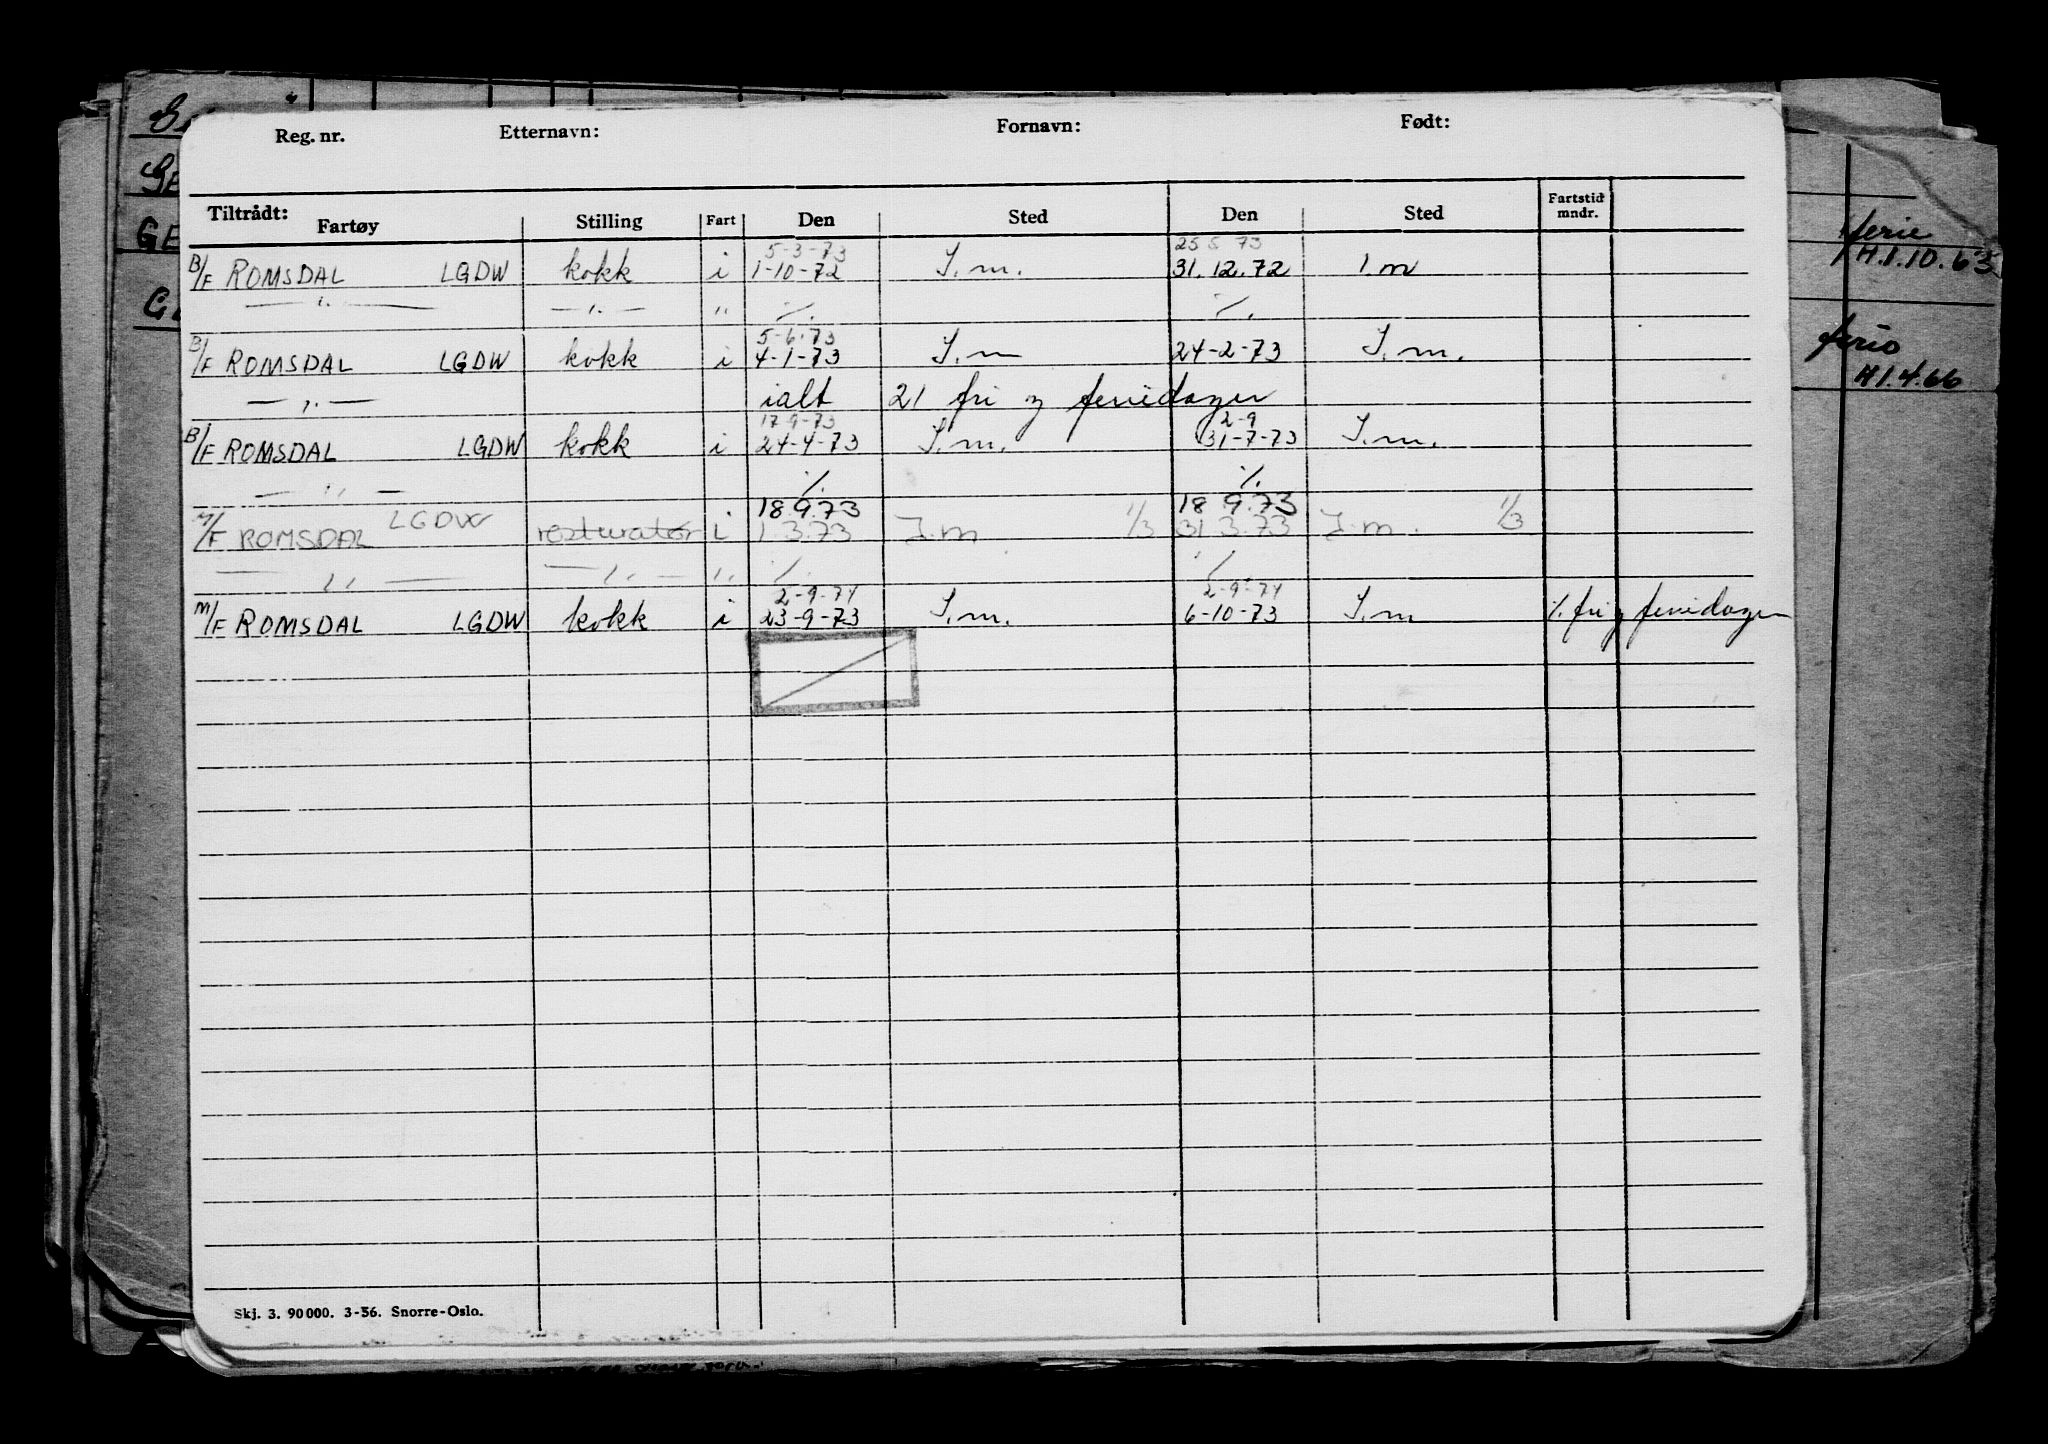 Reg. nr. Etternavn: Fornavn: Født:
Tiltrådt: Fartøy Stilling Fart Den Sted Den Sted Fartstid mndr.
5-3-73 25 5 73
B/F ROMSDAL LGDW kokk i 1-10-72 I.m. 31.12.72 I m
— " — — " — " %. %.
5-6-73
B/F ROMSDAL LGDW kokk i 4-1-73 I.m 24-2-73 I.m.
— " — ialt 21 fri og feriedager
17-9-73 2-9
B/F ROMSDAL LGDW kokk i 24-4-73 I.m. 31-7-73 I.m.
— " — %. %.
18.9.73 18.9.73
M/F ROMSDAL LGDW resturatør i 1.3.73 I.m 1/3 31.3.73 I.m. 1/3
— " — — " — " %. %.
2-9-74 2-9-74
M/F ROMSDAL LGDW kokk i 23-9-73 I.m. 6-10-73 I.m %. fri og feriedager
Skj. 3. 90000. 3-56. Snorre-Oslo.
GE
ferie
H.1.10.63
ferie
H1.4.66